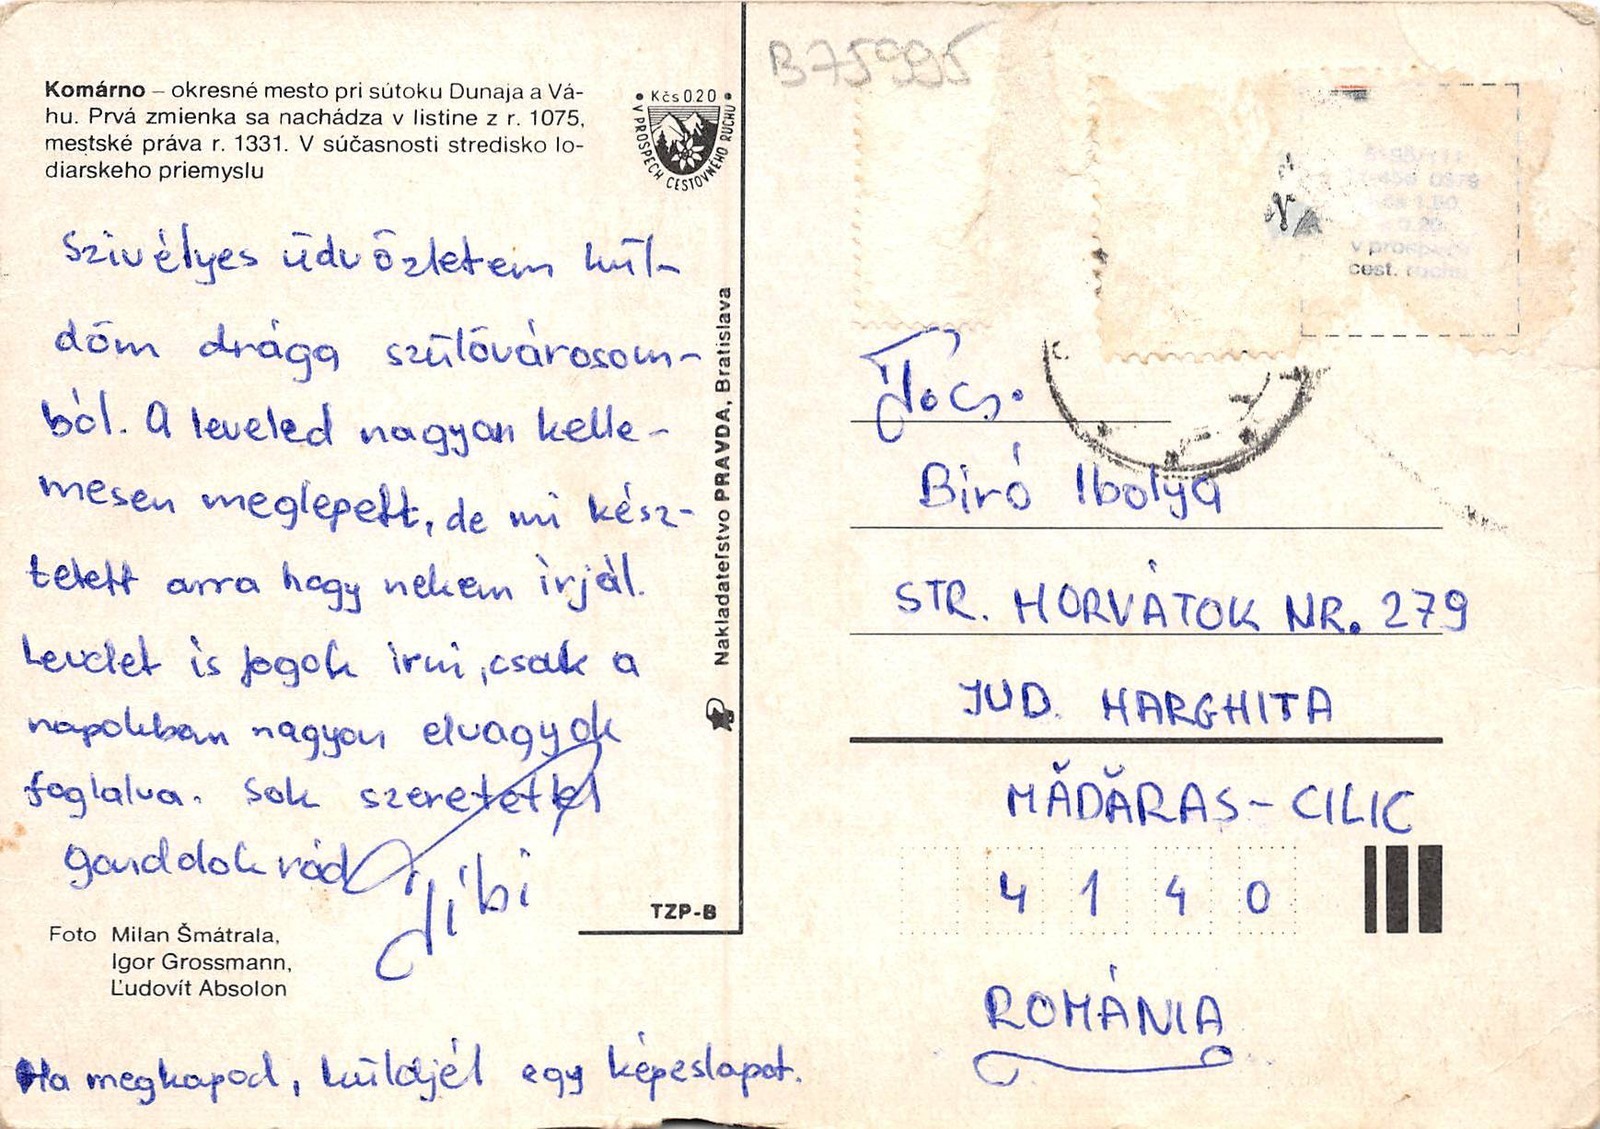 Komárno – okresné mesto pri sútoku Dunaja a Vá-
hu. Prvá zmienka sa nachádza v listine z r. 1075,
mestské práva r. 1331. V súčasnosti stredisko lo-
diarskeho priemyslu
• Kčs 0.20 •
V PROSPECH CESTOVNÉHO RUCHU
Szivélyes üdvözletem kül-
döm drága szülővárosom-
ból. A leveled nagyon kelle-
mesen meglepett, de mi kész-
tetett arra hogy nekem írjál.
Levelet is fogok irni, csak a
napokban nagyon elvagyok
foglalva. Sok szeretettel
gonddok rád
Jibi
TZP-B
Foto Milan Šmátrala,
Igor Grossmann,
Ľudovít Absolon
Ha megkapod, küldjél egy képeslapot.
Nakladateľstvo PRAVDA, Bratislava
B75995
v prospech
cest. ruchu
Biró Ibolya
STR. HORVÁTOK NR. 279
JUD. HARGHITA
MĂDĂRAS - CILIC
4 1 4 0
ROMÁNIA